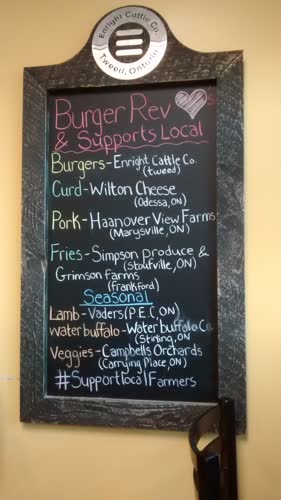 Enright Cattle Co.
Tweed, Ontario
Burger Rev ♥s
& Supports Local
Burgers - Enright Cattle Co.
(tweed)
Curd - Wilton Cheese
(Odessa, ON)
Pork - Haanover View Farms
(Marysville, ON)
Fries - Simpson produce &
(Stoufville, ON)
Grimson farms
(Frankford)
Seasonal
Lamb - Vaders (P.E.C, ON)
water buffalo - Water buffalo C
(Stirling, ON
Veggies - Campbells Orchards
(Carrying Place, ON)
#SupportlocalFarmers